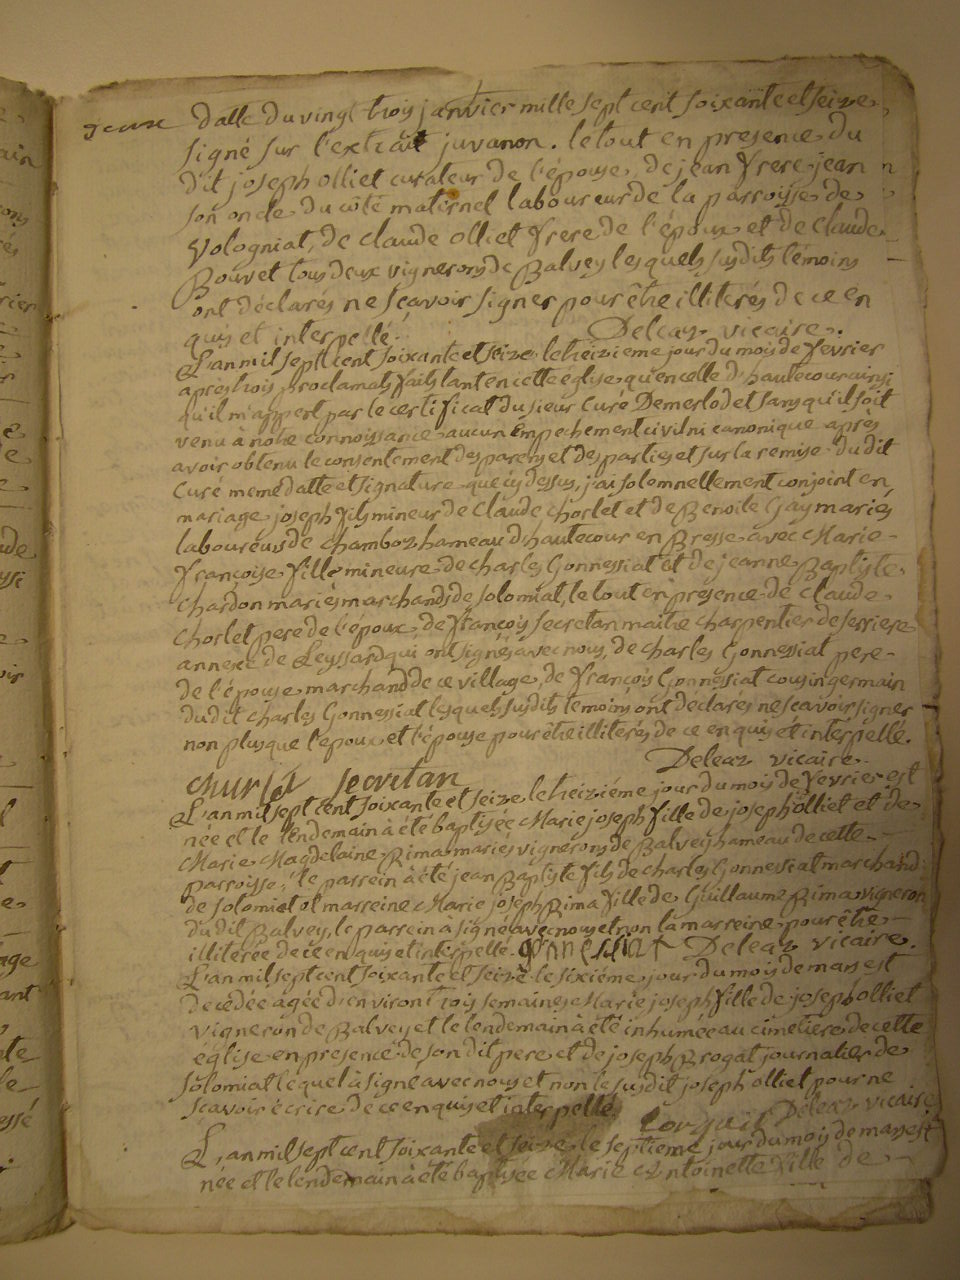 datte du vingt trois janvier mille sept cent soixante et seize
signé sur l'extrait juvanon. le tout en presence du
dit joseph olliet curateur de l'épouse, de jean frere jean
son oncle du côté maternel laboureur de la parroisse de
Vologniat, de claude olliet frere de l'époux et de claude
Bouvet tous deux vignerons de Balvey lesquels susdits témoins
ont déclarés ne sçavoir signer pour être illiterés de ce en
quis et interpellé. Deleaz vicaire.
L'an mil sept cent soixante et seize le treizieme jour du mois de fevrier
apres trois proclamats faits tant en cette église qu'en celle d'hautecour ainsi
qu'il m'appert par le certificat du sieur Curé Demerlod et sans qu'il soit
venu à notre connoissance aucun Empechement civil ni canonique apres
avoir obtenu le consentement des parens et des parties et sur la remise du dit
Curé meme datte et signature que cy dessus, j'ai solemnellement conjoint en
mariage joseph fils mineur de Claude chorlet et de Benoite Gay mariés
laboureurs de chamboz hameau d'hautecour en Bresse avec Marie
françoise fille mineure de charles Gonnessiat et de jeanne Baptiste
chardon mariés marchands de solomiat, le tout en presence de claude
Chorlet pere de l'époux, de françois secretan maitre charpentier de serriere
annexe de Leyssard qui ont signés avec nous, de charles Gonnessiat pere
de l'épouse marchand de ce village, de françois Gonnessiat cousin germain
du dit charles Gonnessiat lesquels susdits temoins ont déclarés ne scavoir signer
non plus que l'époux et l'épouse pour être illiterés de ce en quis et interpellé.
Deleaz vicaire.
secretan
L'an mil sept cent soixante et seize le treiziéme jour du mois de fevrier est
née et le lendemain à été baptisée Marie joseph fille de joseph olliet et de
Marie Magdelaine Rima mariés vignerons de Balvey hameau de cette
parroisse, le parrein à été jean Baptiste fils de charles Gonnessiat marchand
de solomiat et marreine Marie joseph Rima fille de Guillaume Rima vigneron
du dit Balvey, le parrein à signé avec nous et non la marreine pour être
illiterée de ce en quis et interpellé. Deleaz vicaire.
L'an mil sept cent soixante et seize le sixiéme jour du mois de mars est
decédée agée d'environt trois semaines Marie joseph fille de joseph olliet
vigneron de Balvey et le lendemain à été inhumée au cimetiere de cette
église en presence de son dit pere et de joseph Brogat journalier de
solomiat lequel à signé avec nous et non le susdit joseph olliet pour ne
scavoir écrire de ce en quis et interpellé. Deleaz vicaire
L'an mil sept cent soixante et seize le septieme jour du mois de mars est
née et le lendemain à été baptisée Marie Antoinette fille de